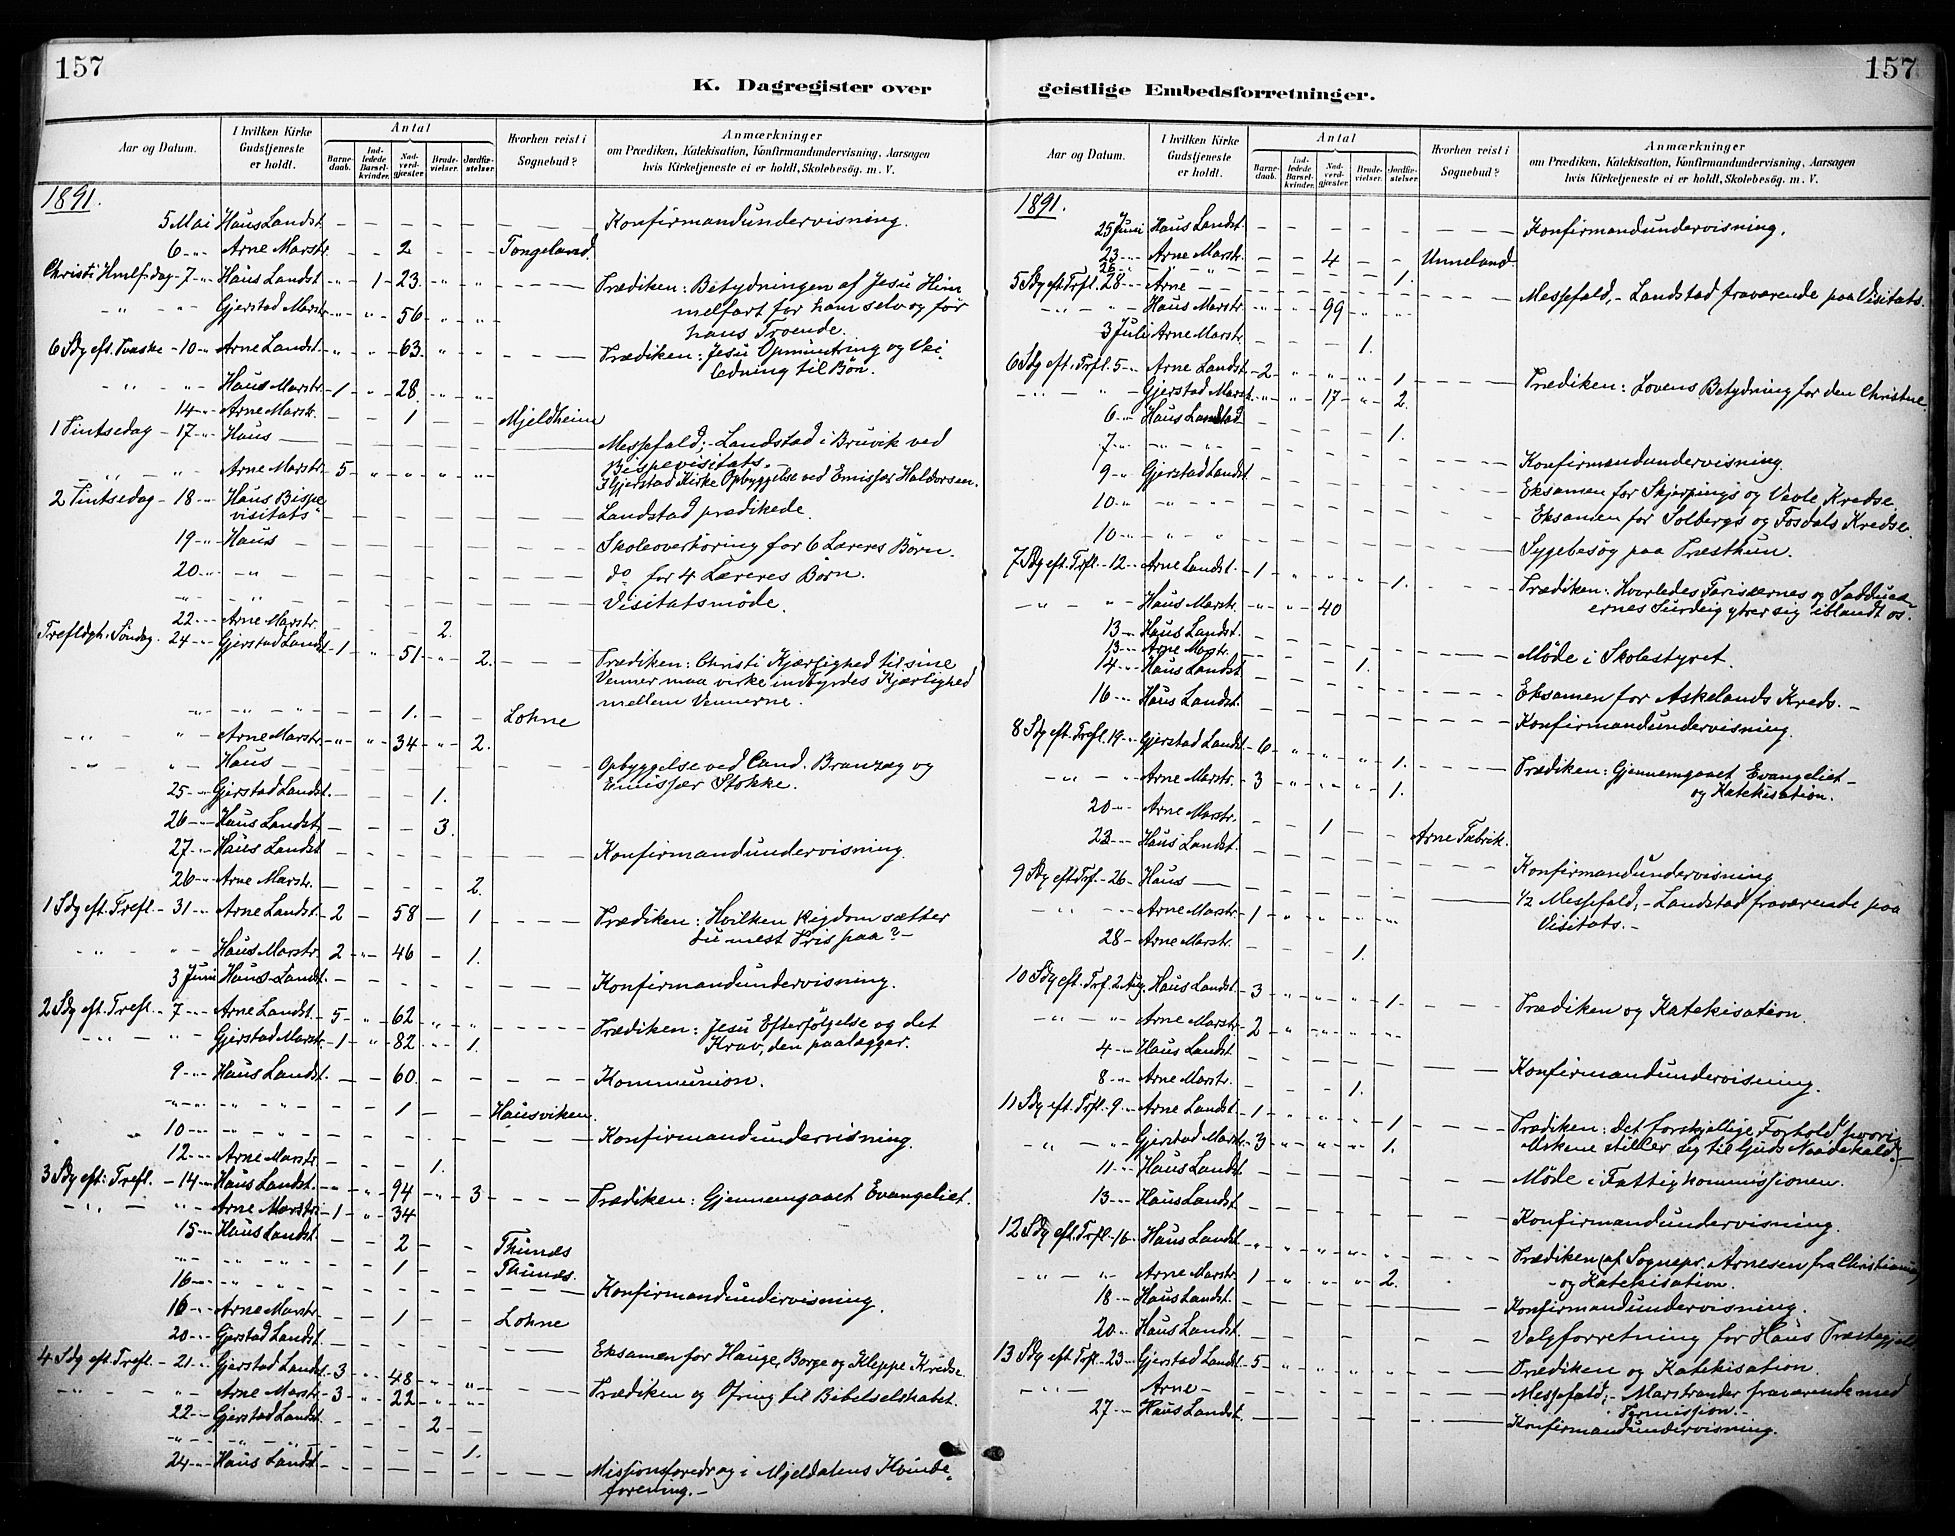 157
K. Dagregister over
Aar og Datum.
I hvilken Kirke Gudstjeneste er holdt.
Antal
Barnedaab.
Indledede Barselkvinder.
Nadverdgjester.
Brudevielser.
Jordfæstelser.
Hvorhen reist i Sognebud?
Anmærkninger
om Prædiken, Katekisation, Konfirmandundervisning, Aarsagen
hvis Kirketjeneste ei er holdt, Skolebesøg. m. V.
1891.
5 Mai Haus Landst. – – – – – – Konfirmandundervisning.
6 " Arne Marstr. – – 2 – – Tongeland.
Christi Hmlf.dag – 7 " Haus Landst. " " 1 – 23. " " – – – Prædiken: Betydningen af Jesu Him
melfart for ham selv og for
hans Troende.
– " – " Gjerstad Marstr. " " 56 " "
6 Sdg eft. Paaske – 10 " Arne Landst. " " 63. " " – – – Prædiken: Jesu Opmuntring og Vei
ledning til Bøn.
– " – " Haus Marstr. – 1 " 28. " "
14 " Arne Marstr. – – 1 – – Mjeldheim
1 Pintsedag – 17 " Haus – – – – – – Messefald; – Landstad i Bruvik ved
Bispevisitats.
– " – " Arne Marstr. 5 – " " " " I Gjerstad Kirke Opbyggelse ved Emissær Haldorsen.
2 Pintsedag – 18 " Haus Bispe
visitats" – – – – – – Landstad prædikede.
19 " Haus – – – – – – Skoleoverhøring for 6 Læreres Børn.
20 " – " – – – – – – do for 4 Læreres Børn.
– " – – " – – – – – – Visitatsmøde.
22 " Arne Marstr. – – – 2.
Trefldgh. Søndag. 24 " Gjerstad Landst. – 1 " 51 " 2. – – – Prædiken: Christi Kjærlighed til sine
Venner maa virke indbyrdes Kjærlighed
mellem Vennerne.
– " – " – " – – – 1. – – Lohne
– " – " Arne Marstr. – " " 34 – " – 2.
– " – " Haus – – – – – – Opbyggelse ved Cand. Branzæg og
Emissær Stokke.
25 " Gjerstad Landst. – – – 1.
26 " Haus Landst. – – – 3.
27 " Haus Landst – – – – – – Konfirmandundervisning.
26 " Arne Marstr. – – – – 2.
1 Sdg eft. Trefl. – 31 " Arne Landst. – 2 – 58 – 1 – – – Prædiken: Hvilken Rigdom sætter
du mest Pris paa? –
– " – " Haus Marstr. 2 – " – 46 – 1.
3 Juni Haus Landst. – – – – – – Konfirmandundervisning.
2 Sdg eft. Trefl. – 7 " Arne Landst. – 5 – " 62 " " – – – Prædiken: Jesu Efterfølgelse og det
Krav, den paalægger.
– " – " Gjerstad Marstr. – 1 – " 82 " 1.
9 " Haus Landst. – – 60. – – – – Kommunion.
– " – " – " – – 1 – – Hausviken.
10 " – " – " – – – – – – Konfirmandundervisning.
12 " Arne Marstr. – – – 1.
3 Sdg eft. Trefl. – 14 " Haus Landst. " " 94 " 3 – – – Prædiken: Gjennemgaaet Evangeliet.
– " – " Arne Marstr. – 1 – " 34
15 " Haus Landst. – – 2 – – Thunæs
– " – " – " – – 1 – – Thunæs.
16 " – " – " – – – – – – Konfirmandundervisning.
16 " Arne Marstr. – – 1 – – Lohne
20 " Gjerstad Landst. – – – – – – Eksamen for Hauge, Borge og Kleppe Kredse.
4 Sdg eft. Trefl. – 21 " Gjerstad Landst. 3 – " 48 " " – – – Prædiken og Ofring til Bibelselskabet.
– " – " Arne Marstr. – 3 – " 22 " "
22 " Gjerstad Landst. – – – 2 –
– " – " – " – – – – 1.
24 " Haus Landst – – – – – – Missionsforedrag i Mjeldalens Kvinde-
forening. –
157
geistlige Embedsforretninger.
Aar og Datum.
I hvilken Kirke Gudstjeneste er holdt.
Antal
Barnedaab.
Indledede Barselkvinder.
Nadverdgjester.
Brudevielser.
Jordfæstelser.
Hvorhen reist i Sognebud?
Anmærkninger
om Prædiken, Katekisation, Konfirmandundervisning, Aarsagen
hvis Kirketjeneste ei er holdt, Skolebesøg. m. V.
1891.
25 Juni Haus Landst. – – – – – – Konfirmandundervisning.
23 " Arne Marstr. – – 4 – – Unneland.
26 " – " – " – – – – 1.
5 Sdg eft. Trfl. 28 " Arne – – – – – – Messefald, – Landstad fraværende paa Visitats.
– " – " Haus Marstr. " " 99 " "
3 Juli Arne Marstr. – – – 1.
6 Sdg eft. Trfl. 5 " Arne Landst. – 2 " " " 1. – – – Prædiken: Lovens Betydning for den Christne
– " – " Gjerstad Marst. " " 17 " 2.
6 " Haus Landstad – – – – 1.
7 " – " – " – – – – – – Konfirmandundervisning.
9 " Gjerstad Landst – – – – – – Eksamen for Skjerpings og Vevle Kredse.
10 " – " – – – – – – Eksamen for Solbergs og Fosdals Kredse.
10 " – " – " – – – – – – Sygebesøg paa Præsthun.
7 Sdg eft. Trfl. – 12 " Arne Landst. – 1 " " " 1. – – – Prædiken: Hvorledes Farisæernes og Sadducæ-
ernes Surdeig ytrer sig iblandt os.
– " – " Haus Marstr. " " 40
13 " Haus Landst. – – – – – – Møde i Skolestyret.
13 " Arne Marstr. – – – 1.
14 " Haus Landst – – – – – – Eksamen for Askelands Kreds. –
16 " Haus Landst. – – – – – – Konfirmandundervisning.
8 Sdg eft. Trefl. 19 " Gjerstad Landst – 6 " " " 1. – – – Prædiken: Gjennemgaaet Evangeliet –
og Katekisation.
– " – " Arne Marstr. – 3 " " " 1.
20 " Arne Marstr. – – 1 – – Arne Fabrik.
23 " Haus Landst. – – – – – – Konfirmandundervisning
9 Sdg eft Trf. – 26 " Haus – – – – – – 1/2 Messefald, – Landstad fraværende paa
Visitats. –
– " – " Arne Marstr. – 1 " " " "
28 – Arne Marstr. – – – 1.
10 Sdg eft. Trf. 2 Aug. Haus Landst. – 3 " " " 1. – – – Prædiken og Katekisation.
– " – " Arne Marstr. – 2 " " " "
4 " Haus Landst. – – – – – – Konfirmandundervisning.
8 " Arne Marstr. – – – 1.
11 Sdg eft. Trfl. – 9 " Arne Landst. – 1 " " " 1. – – – Prædiken: Det forskjellige Forhold hvori
Mskene stiller sig til Guds Naadekald. –
– " – " Gjerstad Marst. – 3 " " " 1.
11 " Haus Landst – – – – – – Møde i Fattigkommissionen.
13 " Haus Landst. – – – – – – Konfirmandundervisning.
12 Sdg eft. Trfl. – 16 " Haus Landst. " " " " " – – – Prædiken (af Sognepr. Arnesen fra Christiania)
– og Katekisation.
– " – " Arne Marstr. 1 " " " 2.
18 " Haus Landst. – – – – – – Konfirmandundervisning.
20 " Haus Landst. – – – – – – Valgforretning for Haus Præstegjeld
13 Sdg eft. Trfl. – 23 " Gjerstad Landst 5 – " " " " – – – Prædiken og Katekisation.
– " – Arne – – – – – – Messefald; – Marstrander fraværende med
Permission. –
27 " Haus Landst. – – – – – – Konfirmandundervisning.